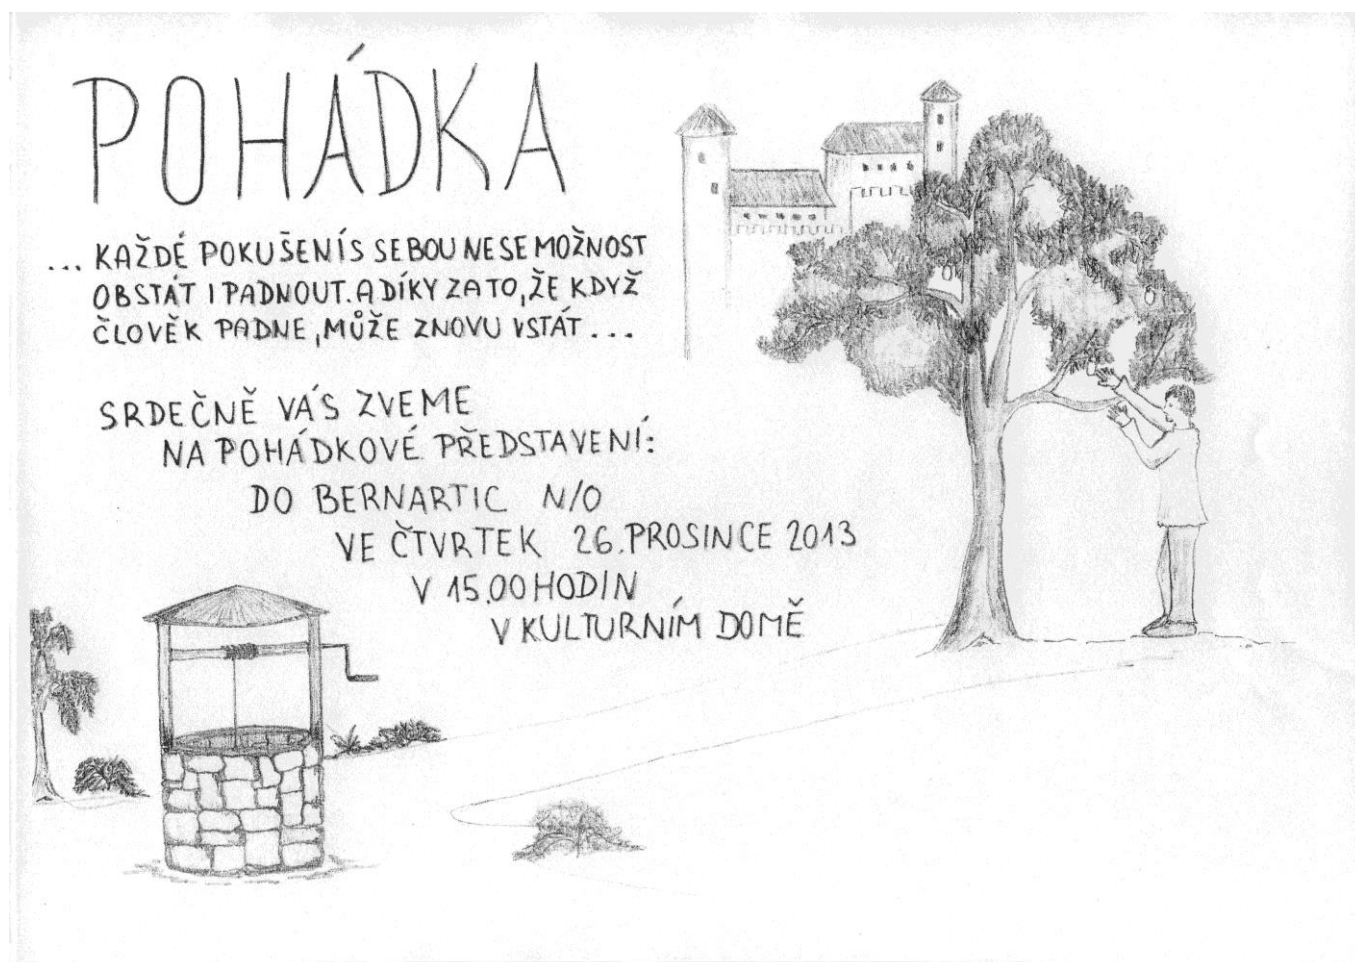 POHÁDKA
... KAŽDÉ POKUŠENÍ S SEBOU NESE MOŽNOST
OBSTÁT I PADNOUT. A DÍKY ZA TO, ŽE KDYŽ
ČLOVĚK PADNE, MŮŽE ZNOVU VSTÁT ...
SRDEČNĚ VÁS ZVEME
NA POHÁDKOVÉ PŘEDSTAVENÍ:
DO BERNARTIC N/O
VE ČTVRTEK 26. PROSINCE 2013
V 15.00 HODIN
V KULTURNÍM DOMĚ